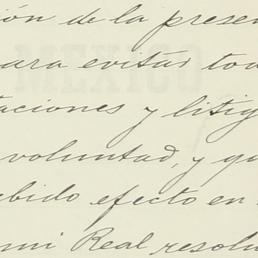 ión de la presen
para evitar tod
taciones y litig
voluntad, y qu
ebido efecto en
mi Real resolu